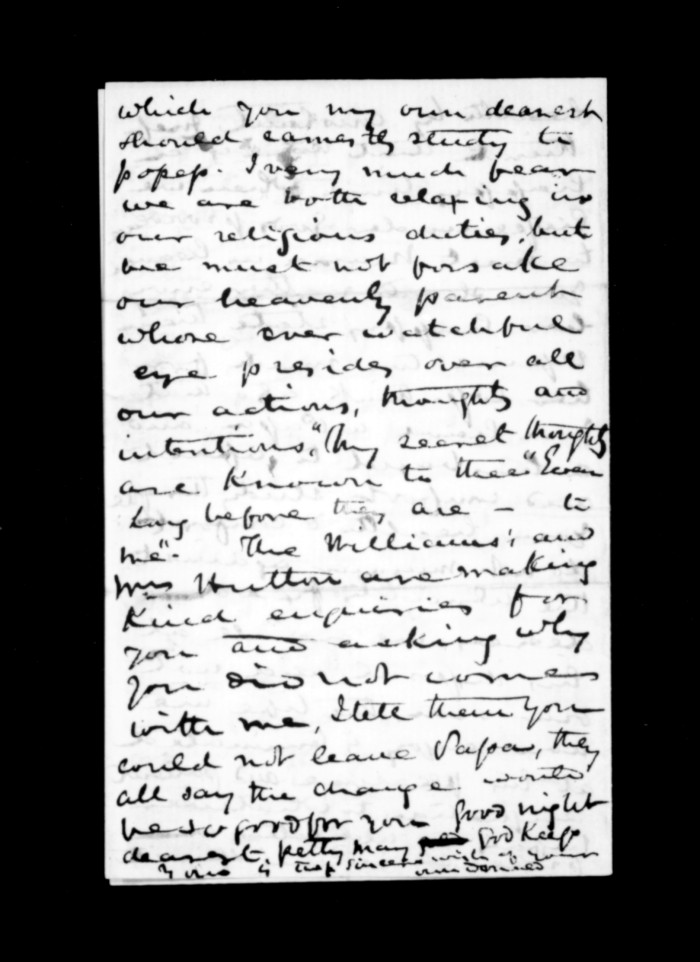 which you my own dearest
should earnestly study to
I very much fear
we are both relaxing in
our religious duties, but
we must not forsake
our heavenly parent
whose ever watchful
eye presides over all
our actions, thoughts and
intentions, "My secret thoughts
are known to thee" Even
long before they are – to
me". The Williams', and
Mrs Hutton are making
kind enquiries for
you and asking why
you did not come
with me, I tell them you
could not leave Papa, they
all say the change would
be so good for you good night
dearest petty may God keep
you is the sincere wish of your
own